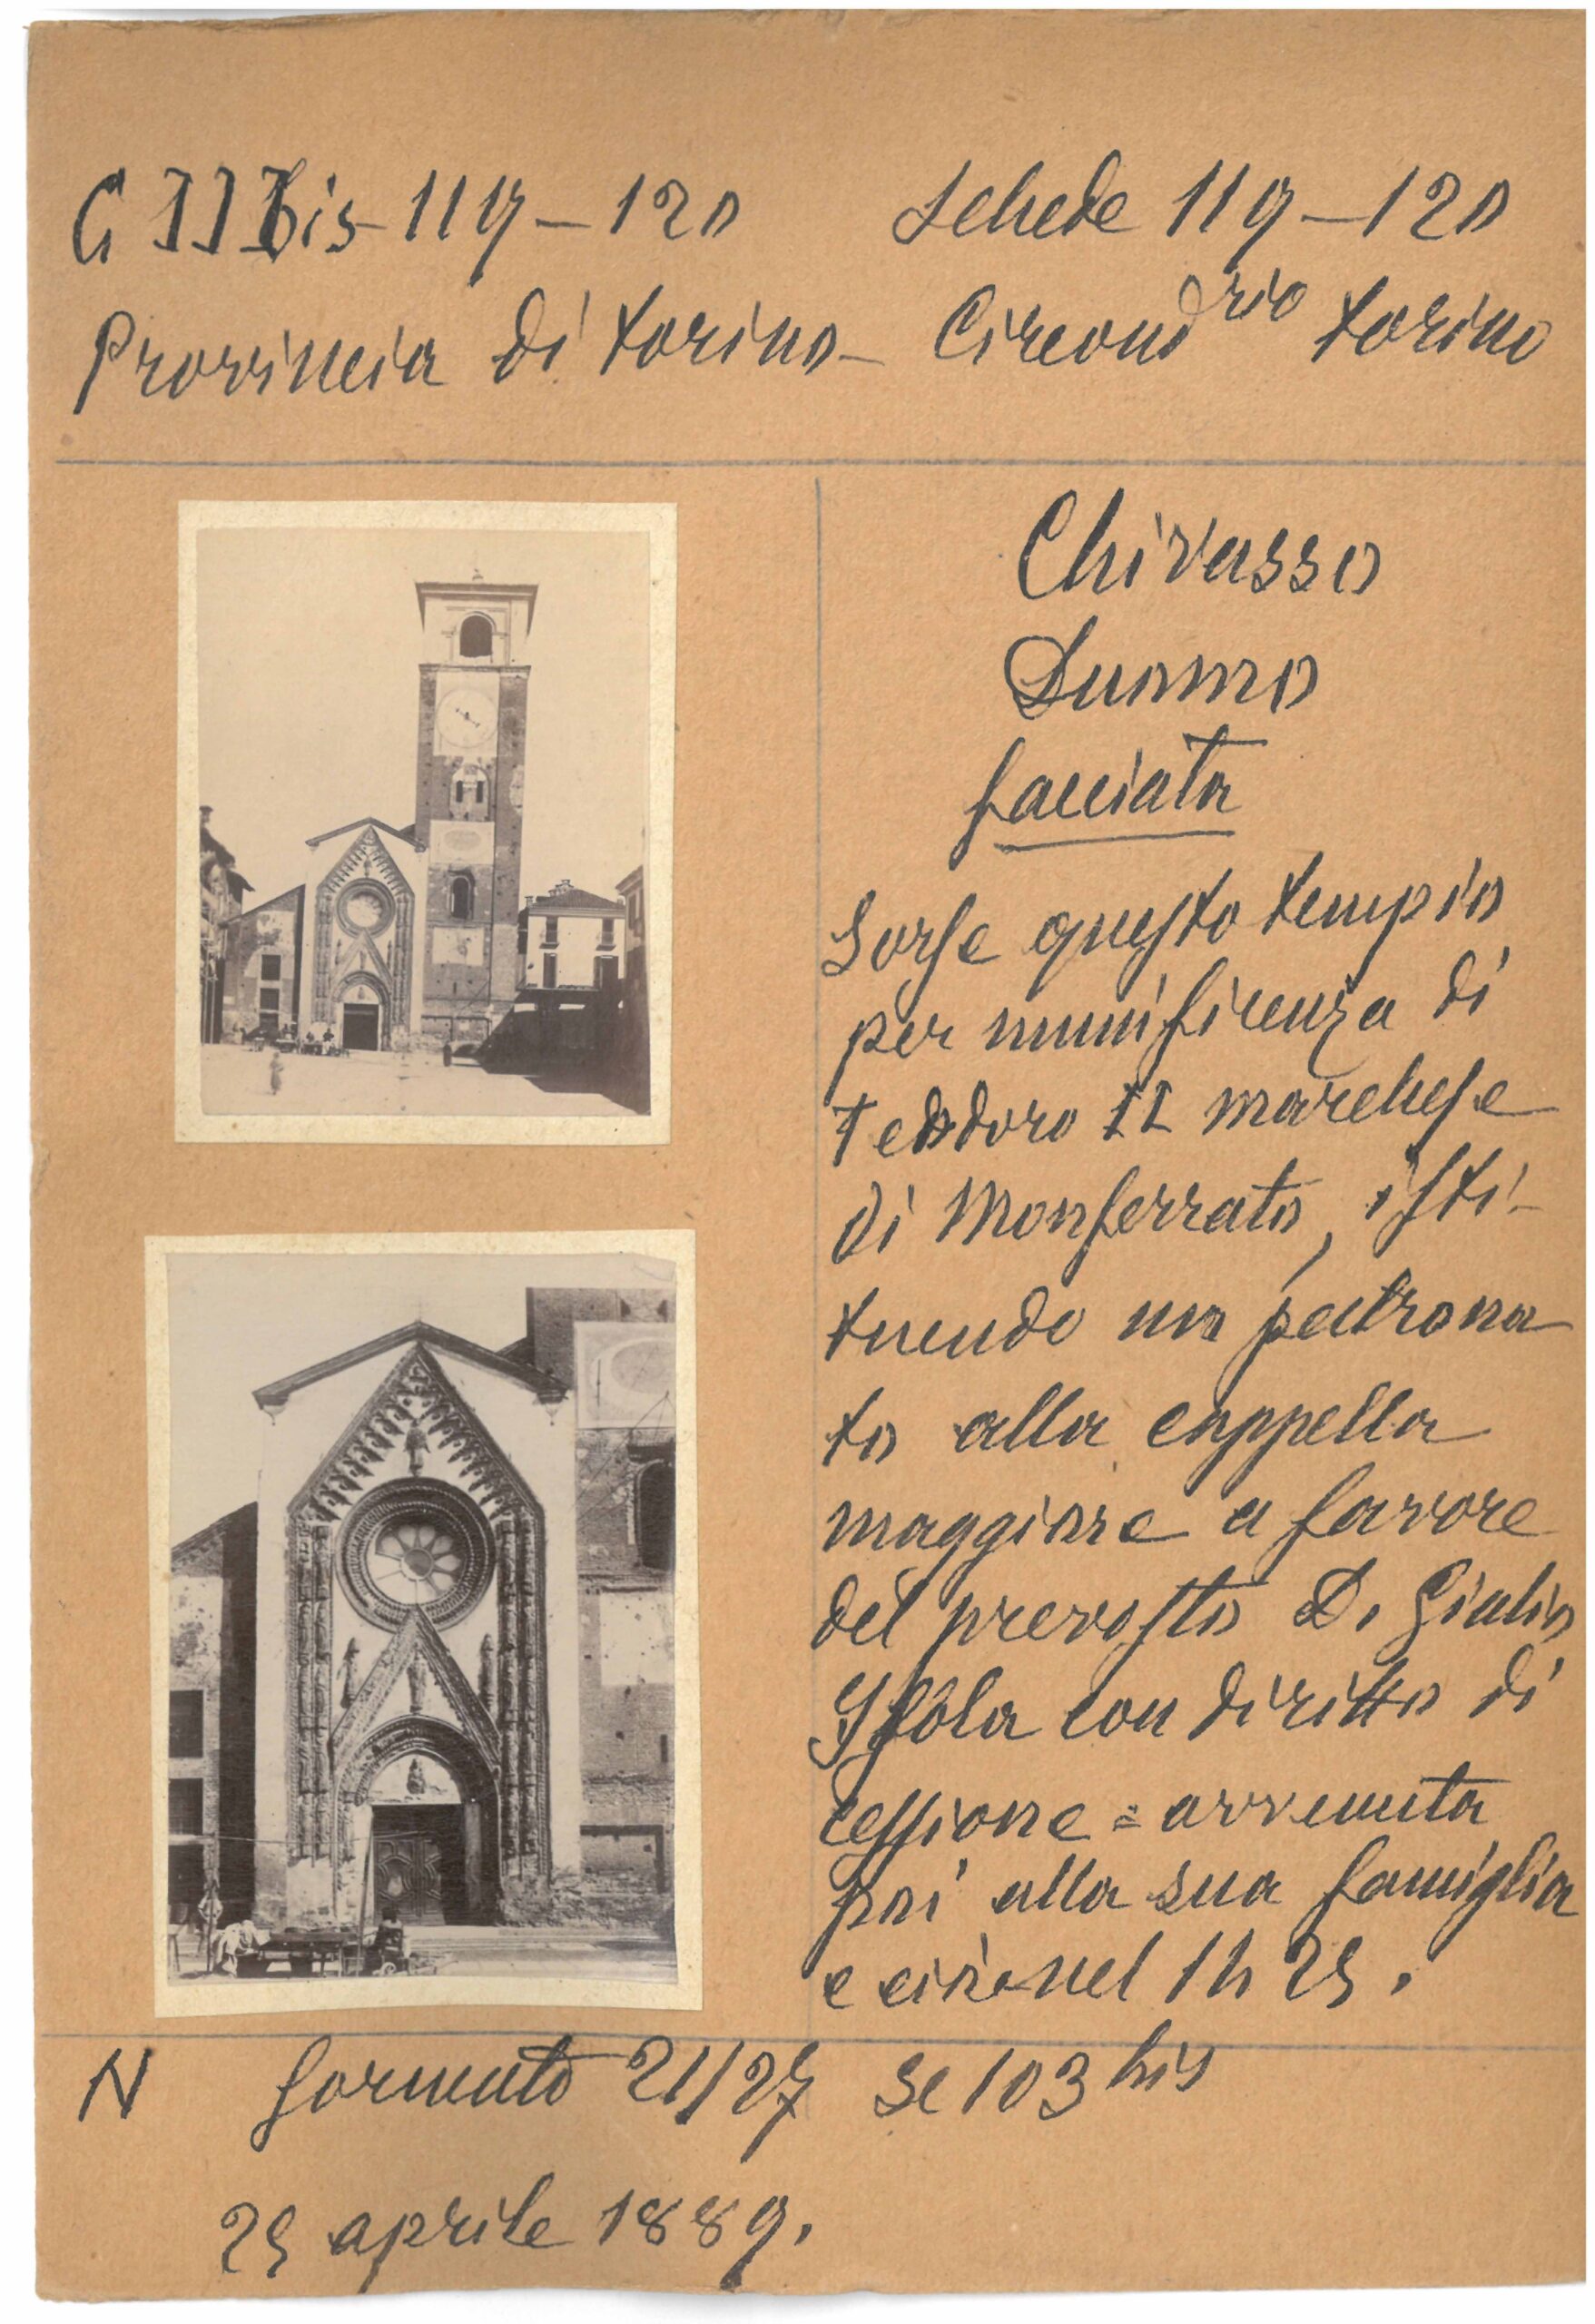 C III bis 119 – 120 Schede 119 – 120
Provincia di Torino – Circond.rio Torino
Chivasso
Duomo
facciata
Sorse questo tempio
per munificenza di
Teodoro II marchese
di Monferrato, isti-
tuendo un patrona
to alla cappella
maggiore a favore
del prevosto D. Giulio
Isola con diritto di
cessione = avvenuta
poi alla sua famiglia
e ciò nel 1425.
N formato 21/27 Sc 103 bis
25 aprile 1889.